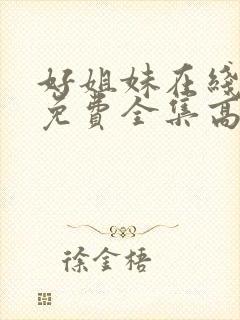 好姐妹在线
免费全集高
徐金梧